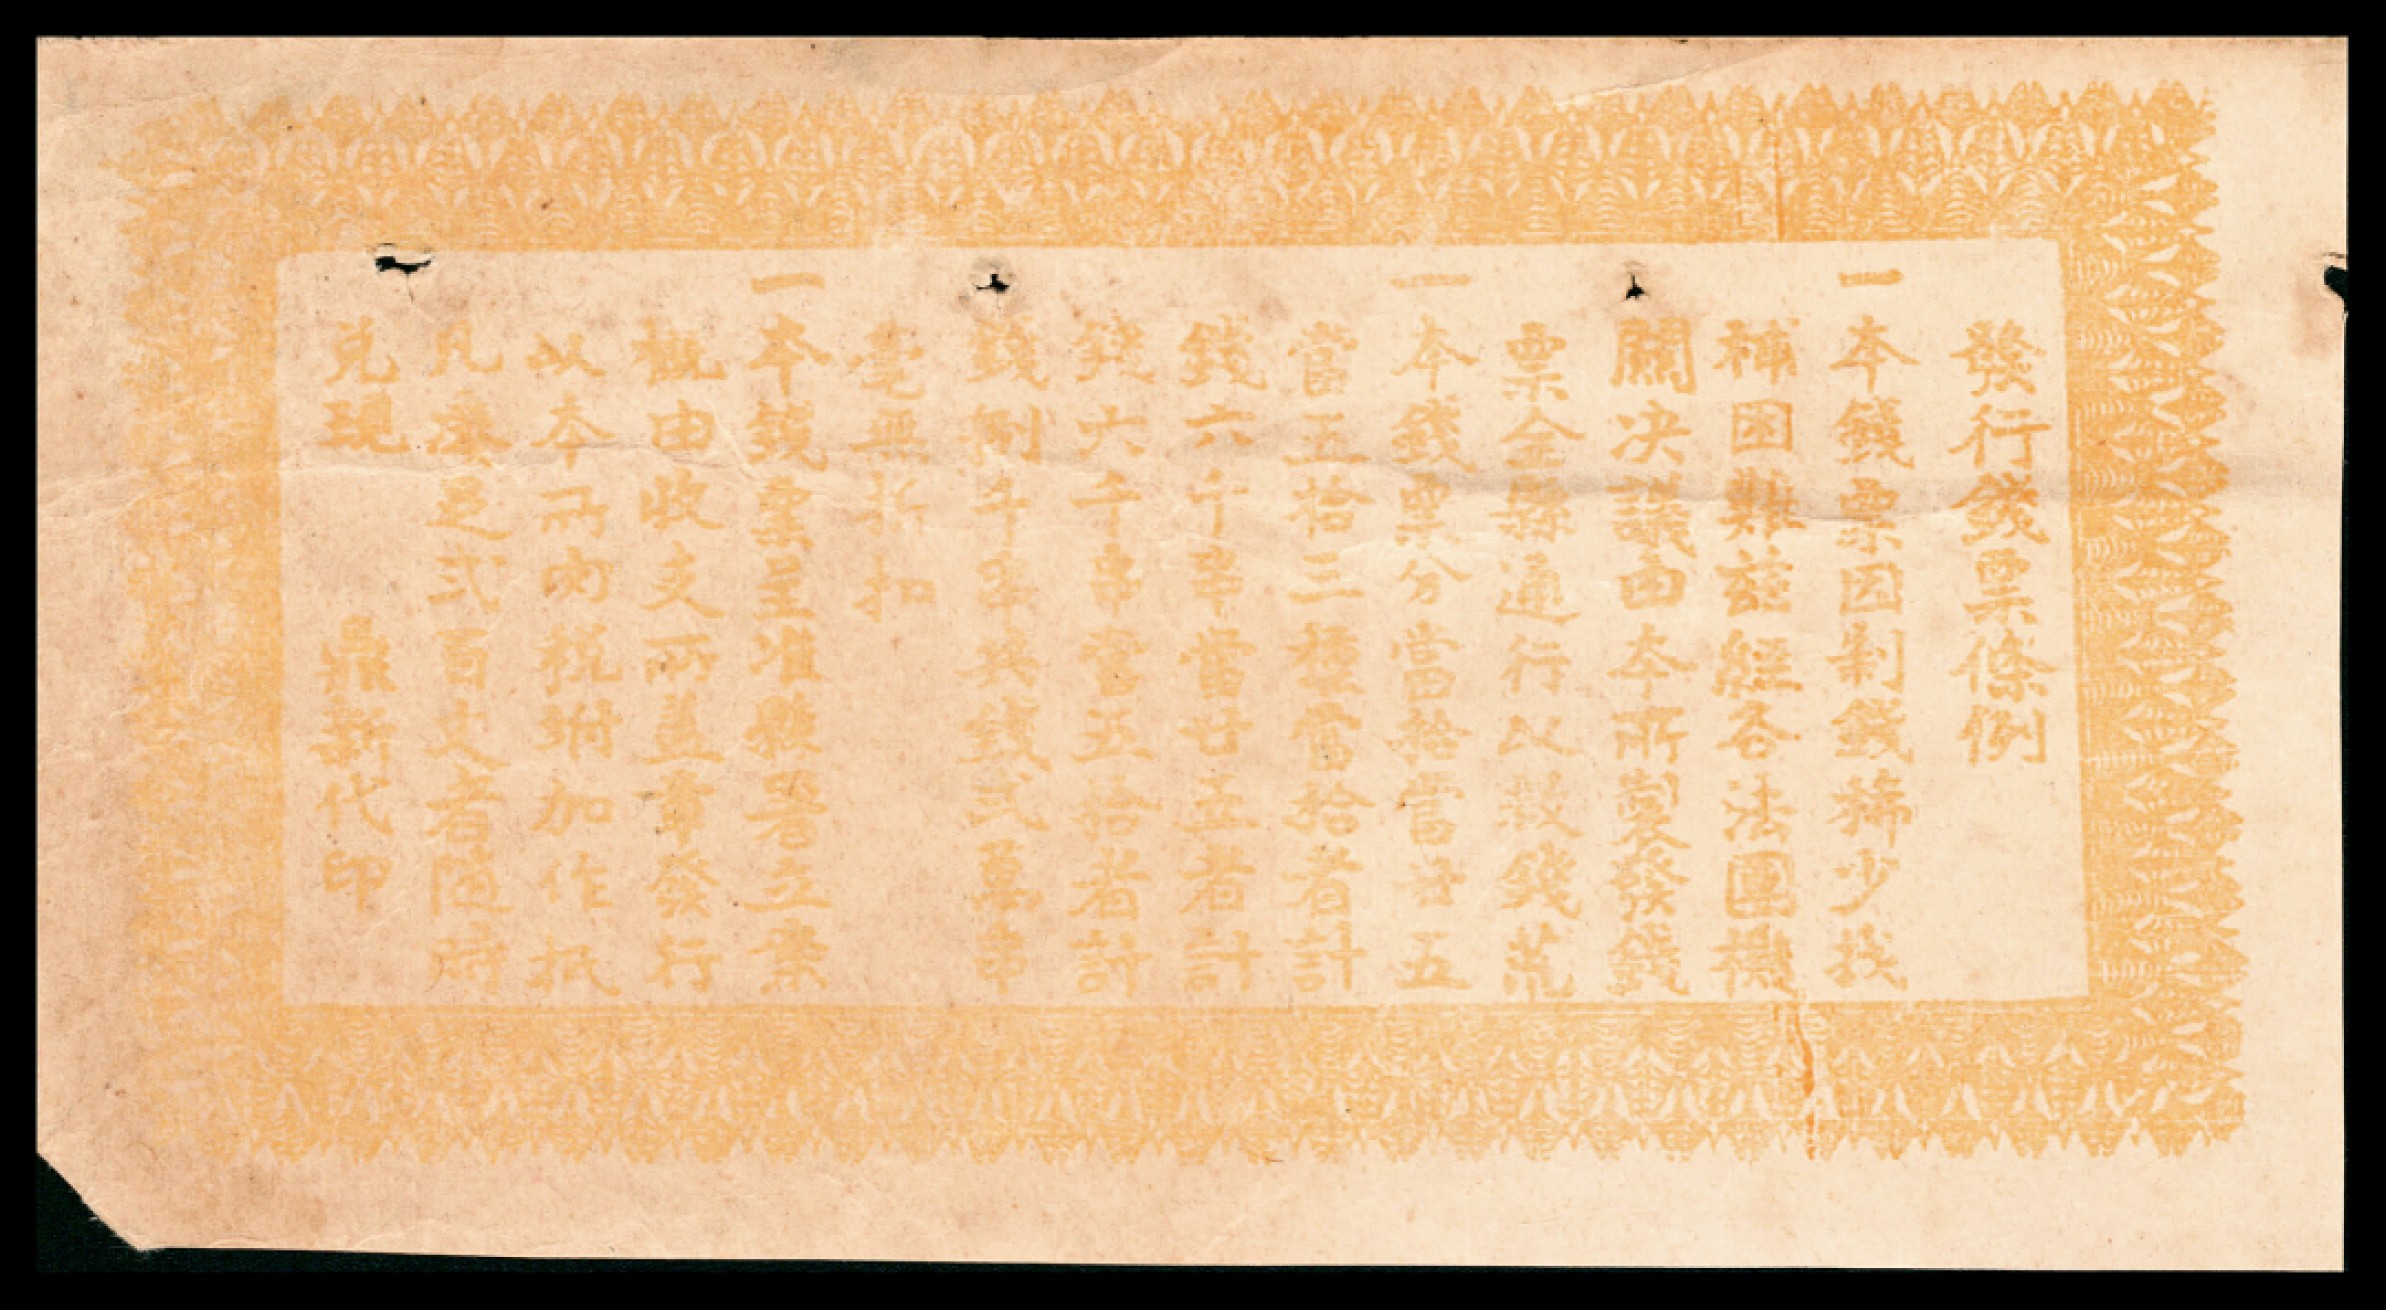 發行錢票條例
一本錢票因制錢稀少找
補困難茲經各法團機
關决議由本所製發錢
票全縣通行以救錢荒
一本錢票分當拾當廿五
當五拾三種當拾者計
錢六千串當廿五者計
錢六千串當五拾者計
錢捌千串共錢弍萬串
毫無折扣
一本錢票呈准縣署立案
概由收支所蓋章發行
以本所肉稅附加作抵
凡湊足弍百文者隨時
兌現　鼎新代印